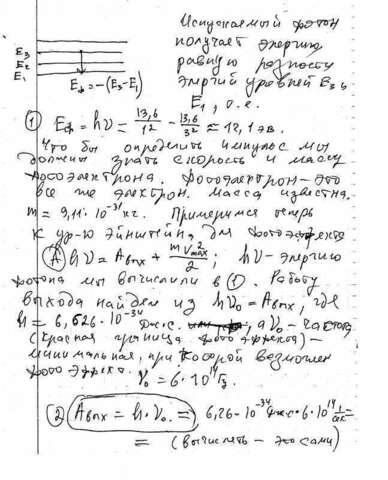 Испускаемый фотон
получает энергию
равную разности
энергий уровней E₃ и
E₁, т.е.
E₃
E₂
E₁
Eф = -(E₃-E₁)
① Eф = hν = 13,6/1² - 13,6/3² ≈ 12,1 эв.
Что бы определить импульс мы
должны знать скорость и массу
фотоэлектрона. Фотоэлектрон - это
все же электрон. Масса известна.
m = 9,11·10⁻³¹ кг. Применимся теперь
к ур-ю Эйнштейна для фотоэффекта
Ⓐ hν = Aвых + mV²max/2; hν - энергию
фотона мы вычислили в ①. Работу
выхода найдем из hν₀ = Aвых, где
h = 6,626·10⁻³⁴ Дж·с. а ν₀ - частота
(красная граница фотоэффекта) -
минимальная, при которой возможен
фотоэффект.
ν₀ = 6·10¹⁴ Гц
② Aвых = h·ν₀ = 6,26·10⁻³⁴ Дж·с·6·10¹⁴ 1/с =
= (вычислять - это сами)